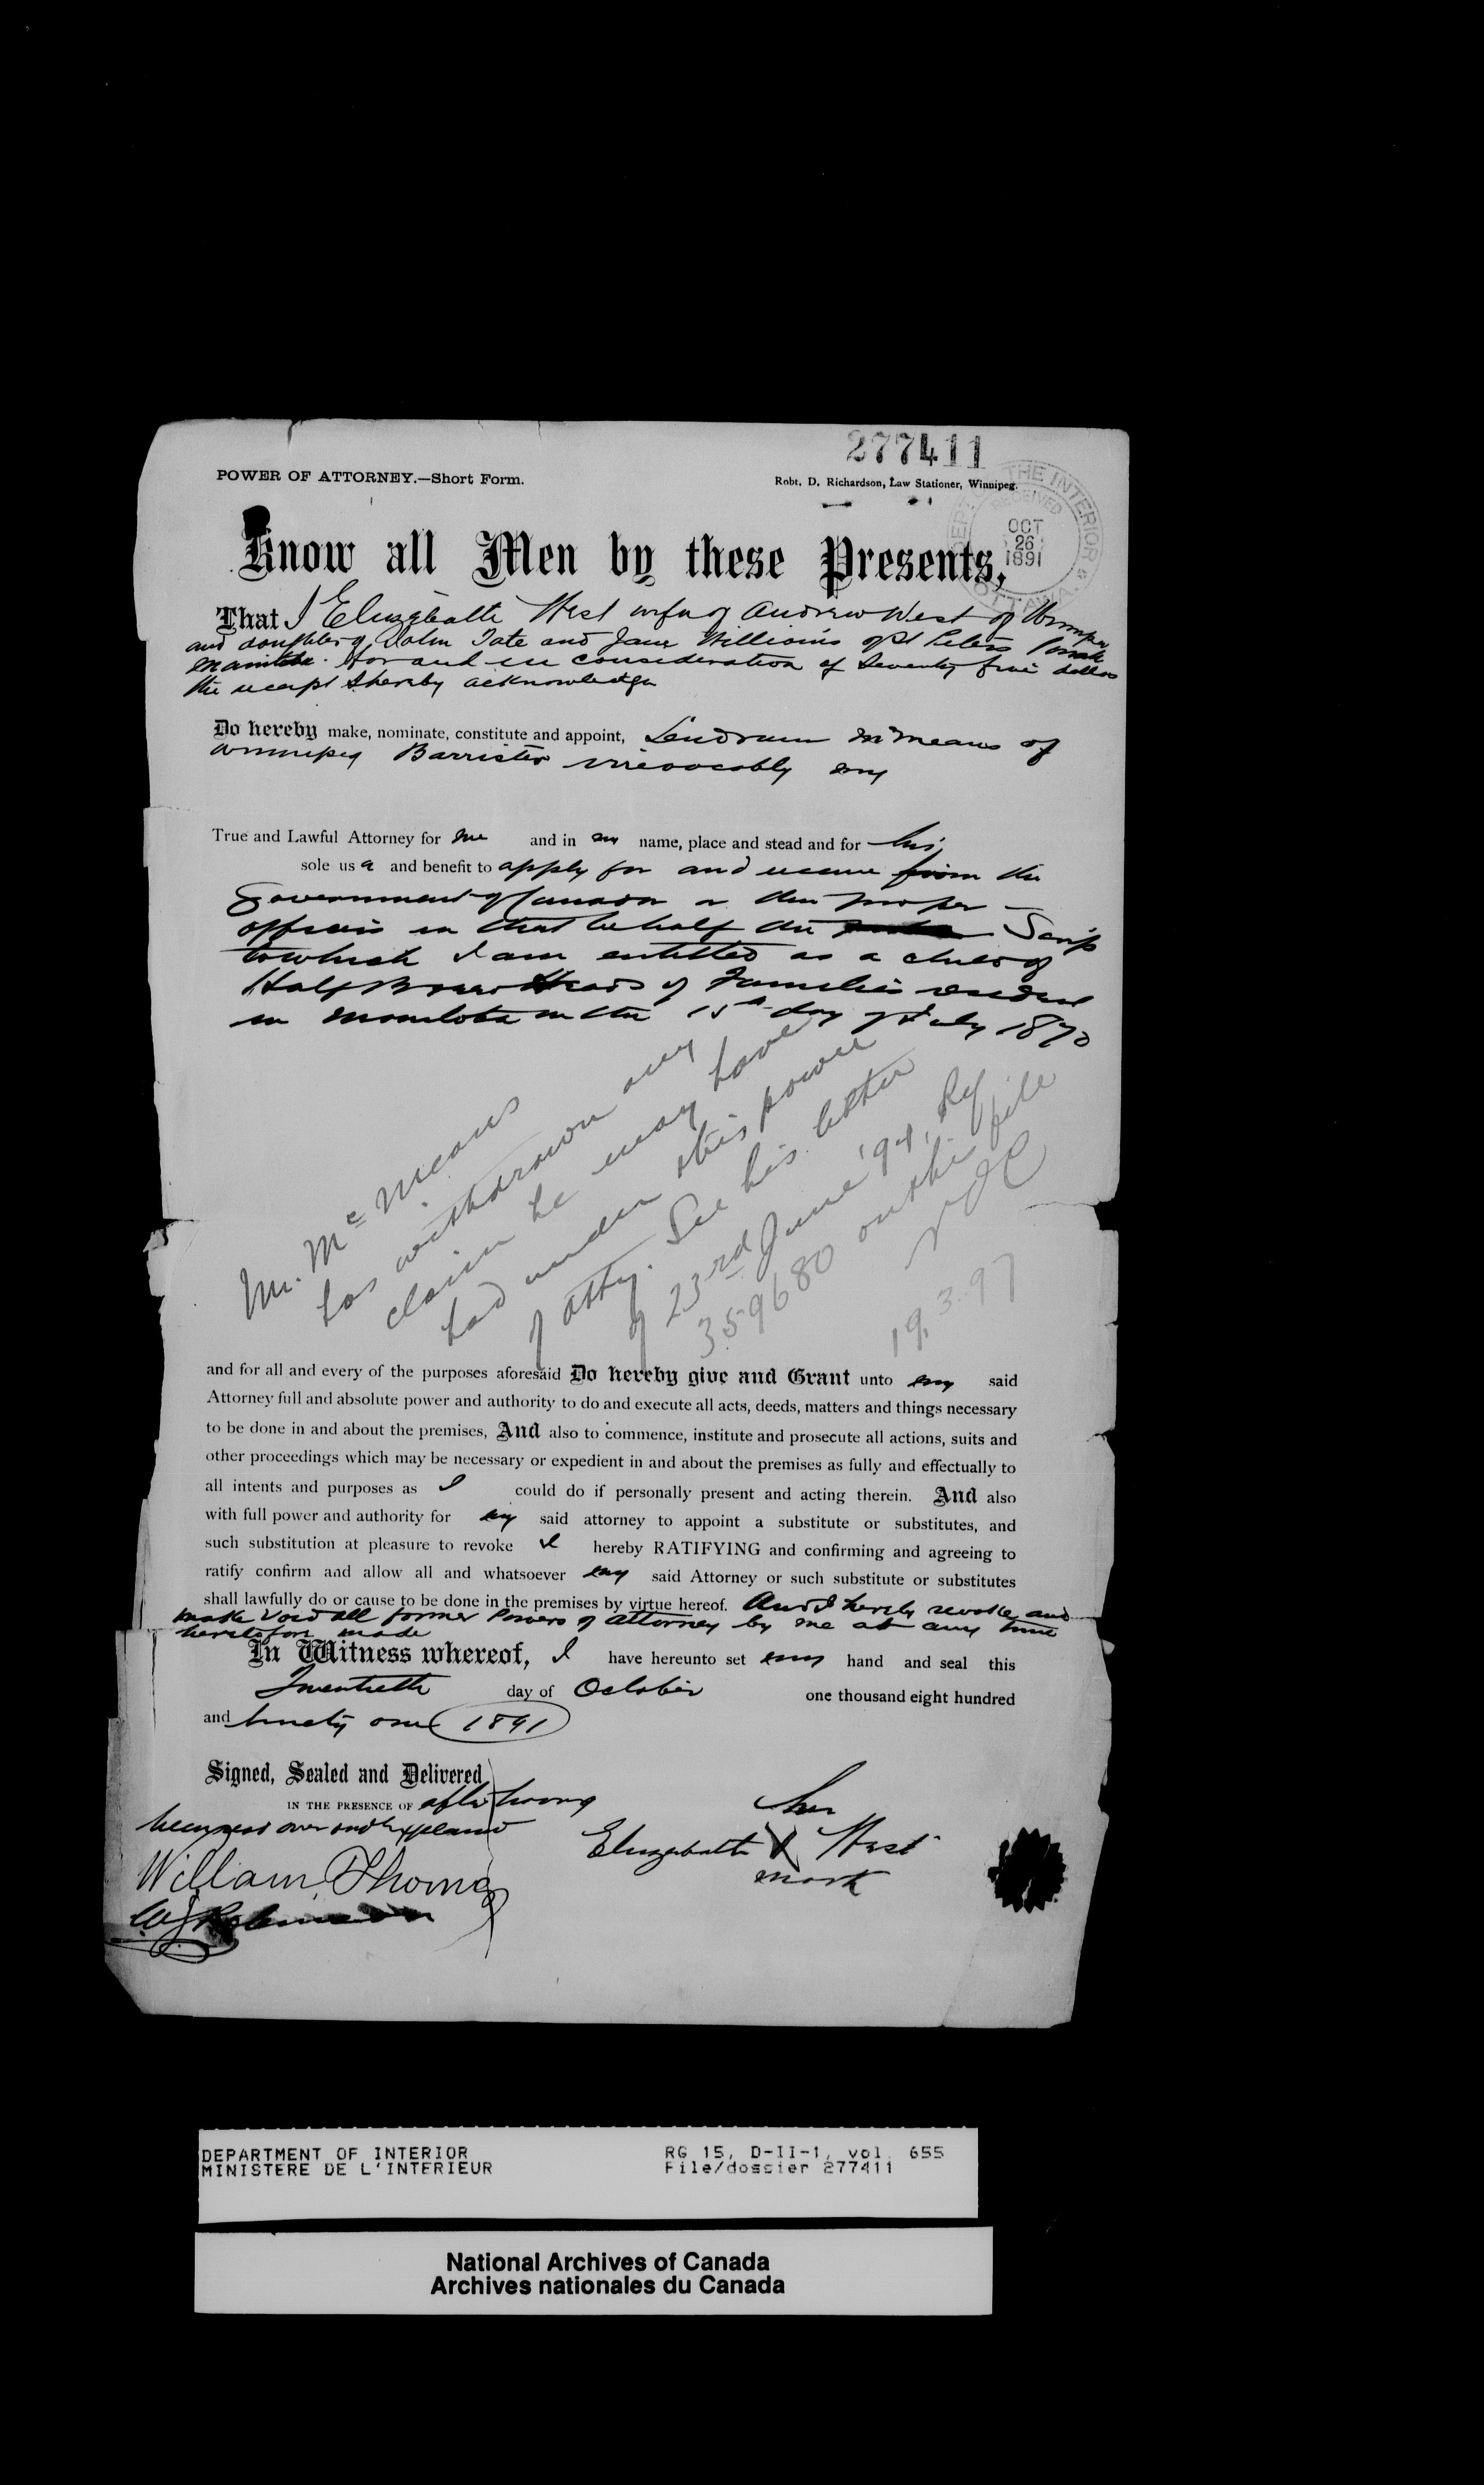 277411
POWER OF ATTORNEY.—Short Form.
Robt. D. Richardson, Law Stationer, Winnipeg.
DEPT OF THE INTERIOR
RECEIVED
OCT
26
1891
OTTAWA
Know all Men by these Presents,
That I Elizabeth West wife of Andrew West of Winnipeg
and daughter of John Tate and Jane Williams of St Peters Parish
Manitoba. For and in consideration of Seventy five dollars
the receipt I hereby acknowledge
Do hereby make, nominate, constitute and appoint, Lendrum McMeans of
Winnipeg Barrister irrevocably my
True and Lawful Attorney for me and in my name, place and stead and for his
sole use and benefit to apply for and receive from the
Government of Canada or the proper
officers in that behalf the Scrip
to which I am entitled as a child of
Half Breed Heads of Families resident
in Manitoba on the 15th day of July 1870
Mr. McMeans
has withdrawn any
claim he may have
had under this power
of atty. See his letter
of 23rd June '94, Ref
359680 on this file
19.3.97
and for all and every of the purposes aforesaid Do hereby give and Grant unto my said
Attorney full and absolute power and authority to do and execute all acts, deeds, matters and things necessary
to be done in and about the premises, And also to commence, institute and prosecute all actions, suits and
other proceedings which may be necessary or expedient in and about the premises as fully and effectually to
all intents and purposes as I could do if personally present and acting therein. And also
with full power and authority for my said attorney to appoint a substitute or substitutes, and
such substitution at pleasure to revoke I hereby RATIFYING and confirming and agreeing to
ratify confirm and allow all and whatsoever my said Attorney or such substitute or substitutes
shall lawfully do or cause to be done in the premises by virtue hereof. And I hereby revoke and
make void all former Powers of Attorney by me at any time
heretofore made
In Witness whereof, I have hereunto set my hand and seal this
Twentieth day of October one thousand eight hundred
and ninety one 1891
Signed, Sealed and Delivered
IN THE PRESENCE OF after having
been read over and explained
her
Elizabeth X West
mark
William Thomas
W J Robinson
DEPARTMENT OF INTERIOR
MINISTERE DE L'INTERIEUR
RG 15, D-II-1, vol. 655
File/dossier 277411
National Archives of Canada
Archives nationales du Canada